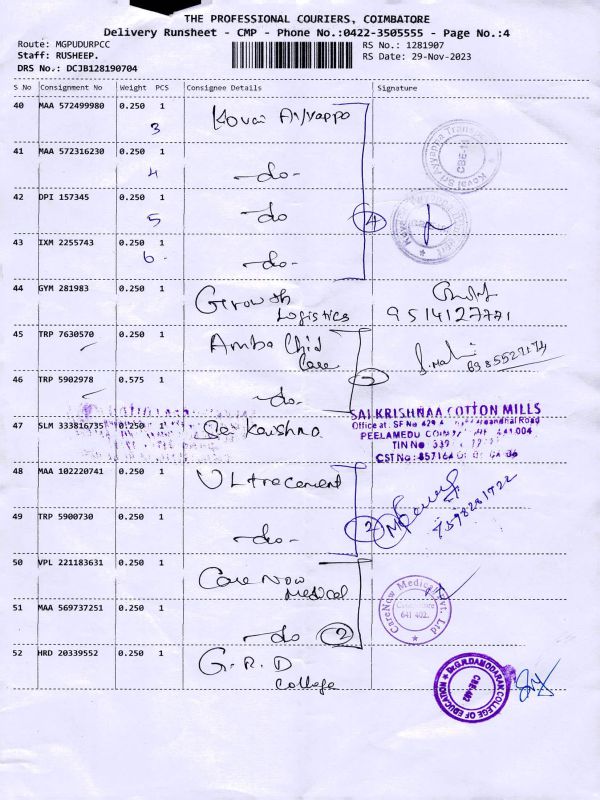 THE PROFESSIONAL COURIERS, COIMBATORE
Delivery Runsheet - CMP - Phone No.:0422-3505555 - Page No.:4
Route: MGPUDURPCC RS No.: 1281907
Staff: RUSHEEP. RS Date: 29-Nov-2023
DRS No.: DCJB128190704
S No Consignment No Weight PCS Consignee Details Signature
40 MAA 572499980 0.250 1 Kovai Ayyappa
3
41 MAA 572316230 0.250 1 -do-
4
42 DPI 157345 0.250 1 -do
5 4
43 IXM 2255743 0.250 1 -do-
6.
44 GYM 281983 0.250 1 Growth
Logistics 9514127771
45 TRP 7630570 0.250 1 Amba Child
Care
46 TRP 5902978 0.575 1 -do-
2
SAI KRISHNAA COTTON MILLS
47 SLM 333816735 0.250 1 Sai Krishna
Office at: SF No 429
PEELAMEDU
TIN No
CST No:
48 MAA 102220741 0.250 1 Ultracement
49 TRP 5900730 0.250 1 -do-
2
7598281722
50 VPL 221183631 0.250 1 Care Now
Medical
CareNow Medical Pvt. Ltd
Coimbatore
641 402.
51 MAA 569737251 0.250 1 -do 2
52 HRD 20339552 0.250 1 G.R.D
College
Dr.G.R.DAMODARAN COLLEGE OF EDUCATION